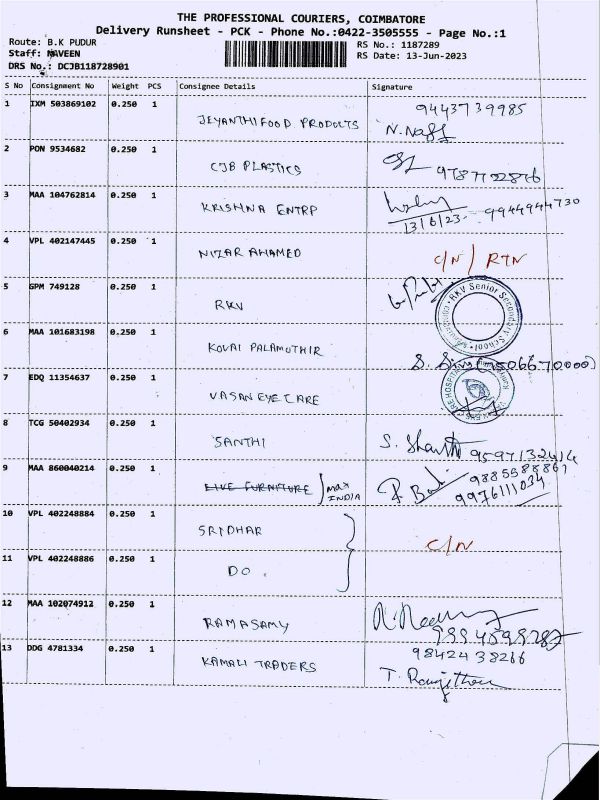 THE PROFESSIONAL COURIERS, COIMBATORE
Delivery Runsheet - PCK - Phone No.:0422-3505555 - Page No.:1
Route: B.K PUDUR RS No.: 1187289
Staff: NAVEEN RS Date: 13-Jun-2023
DRS No.: DCJB118728901
S No Consignment No Weight PCS Consignee Details Signature
1 IXM 503869102 0.250 1 JEYANTHI FOOD PRODUCTS 9443739985
2 PON 9534682 0.250 1 CJB PLASTICS
3 MAA 104762814 0.250 1 KRISHNA ENTRP 13/6/23 9944944730
4 VPL 402147445 0.250 1 NIZAR AHAMED C/N / RTN
5 GPM 749128 0.250 1 RKV RKV Senior Secondary School
6 MAA 101683198 0.250 1 KOVAI PALAMOTHIR
7 EDQ 11354637 0.250 1 VASAN EYE CARE
8 TCG 50402934 0.250 1 SANTHI S. Shanthi 9597132414
9 MAA 860040214 0.250 1 LIVE FURNITURE MAX INDIA 9976111034
10 VPL 402248884 0.250 1 SRIDHAR C/N
11 VPL 402248886 0.250 1 DO
12 MAA 102074912 0.250 1 RAMASAMY
13 DDG 4781334 0.250 1 KAMALI TRADERS 9842438266